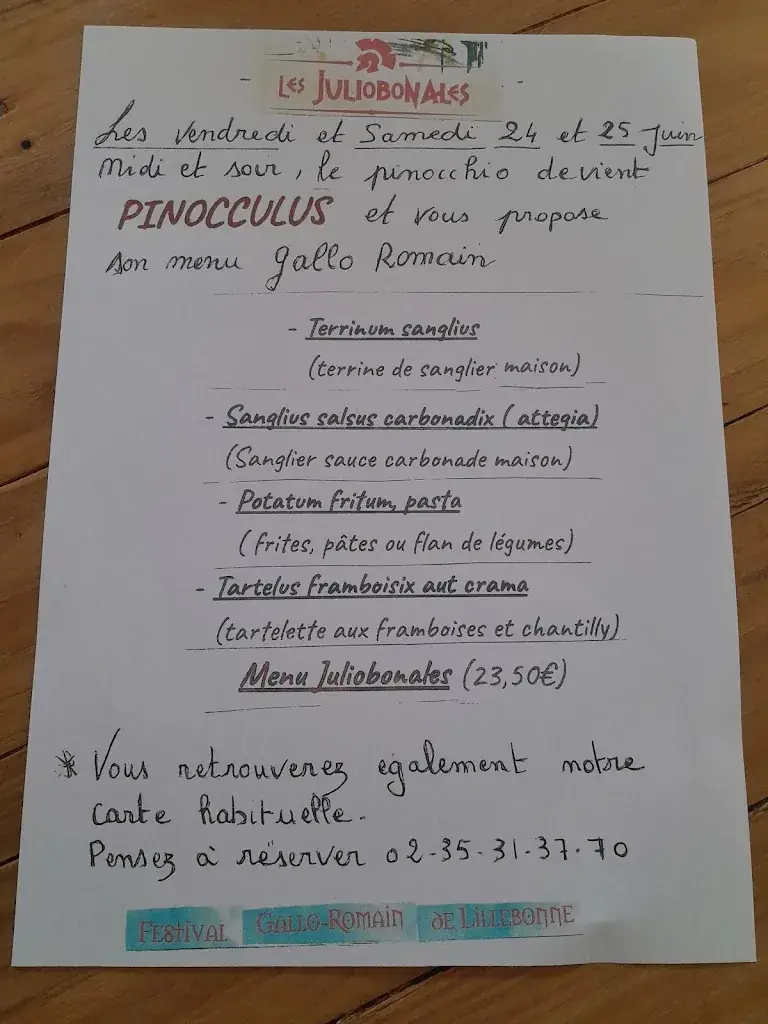 Les JULIOBONALES
Les Vendredi et Samedi 24 et 25 Juin
Midi et soir, le pinocchio devient
PINOCCULUS et vous propose
son menu Gallo Romain
- Terrinum sanglius
(terrine de sanglier maison)
- Sanglius salsus carbonadix ( attegia)
(Sanglier sauce carbonade maison)
- Potatum fritum, pasta
( frites, pâtes ou flan de légumes)
- Tartelus framboisix aut crama
(tartelette aux framboises et chantilly)
Menu Juliobonales (23,50€)
* Vous retrouverez également notre
carte habituelle.
Pensez à réserver 02-35-31-37-70
FESTIVAL GALLO-ROMAIN DE LILLEBONNE